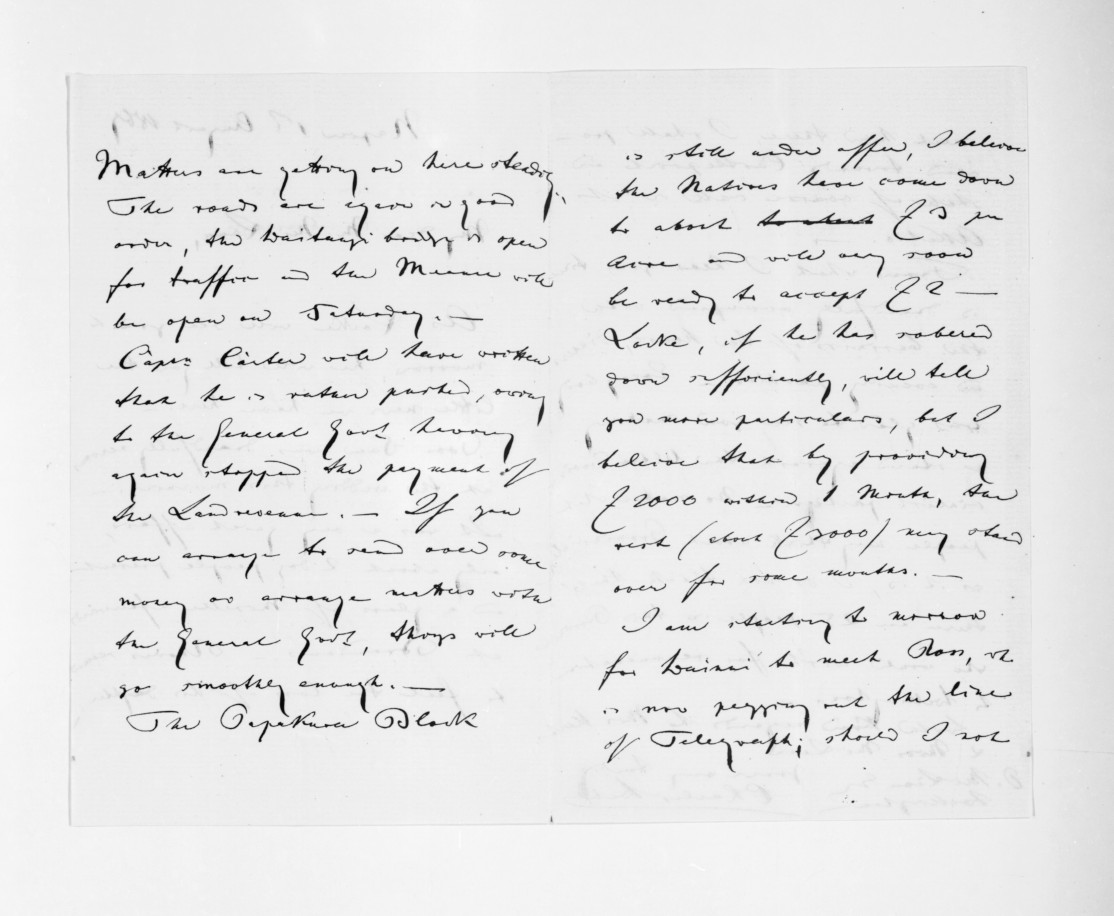 Matters are getting on here steadily.
The roads are again in good
order, the Waitangi bridge is open
for traffic and the Meanee will
be open on Saturday. —
Captn Carter will have written
that he is rather pushed, owing
to the General Govt having
again stopped the payment of
the Land revenue. — If you
can arrange to send over some
money or arrange matters with
the General Govt, things will
go smoothly enough. —
The Papakura Block
is still under offer, I believe
the Natives have come down
to about to about £3 per
Acre and will very soon
be ready to accept £2 —
Locke, if he has sobered
down sufficiently, will tell
you more particulars, but I
believe that by providing
£2000 within 1 Month, the
rest (about £3000) may stand
over for some months. —
I am starting to morrow
for Wainui to meet Ross, who
is now pegging out the line
of Telegraph; should I not